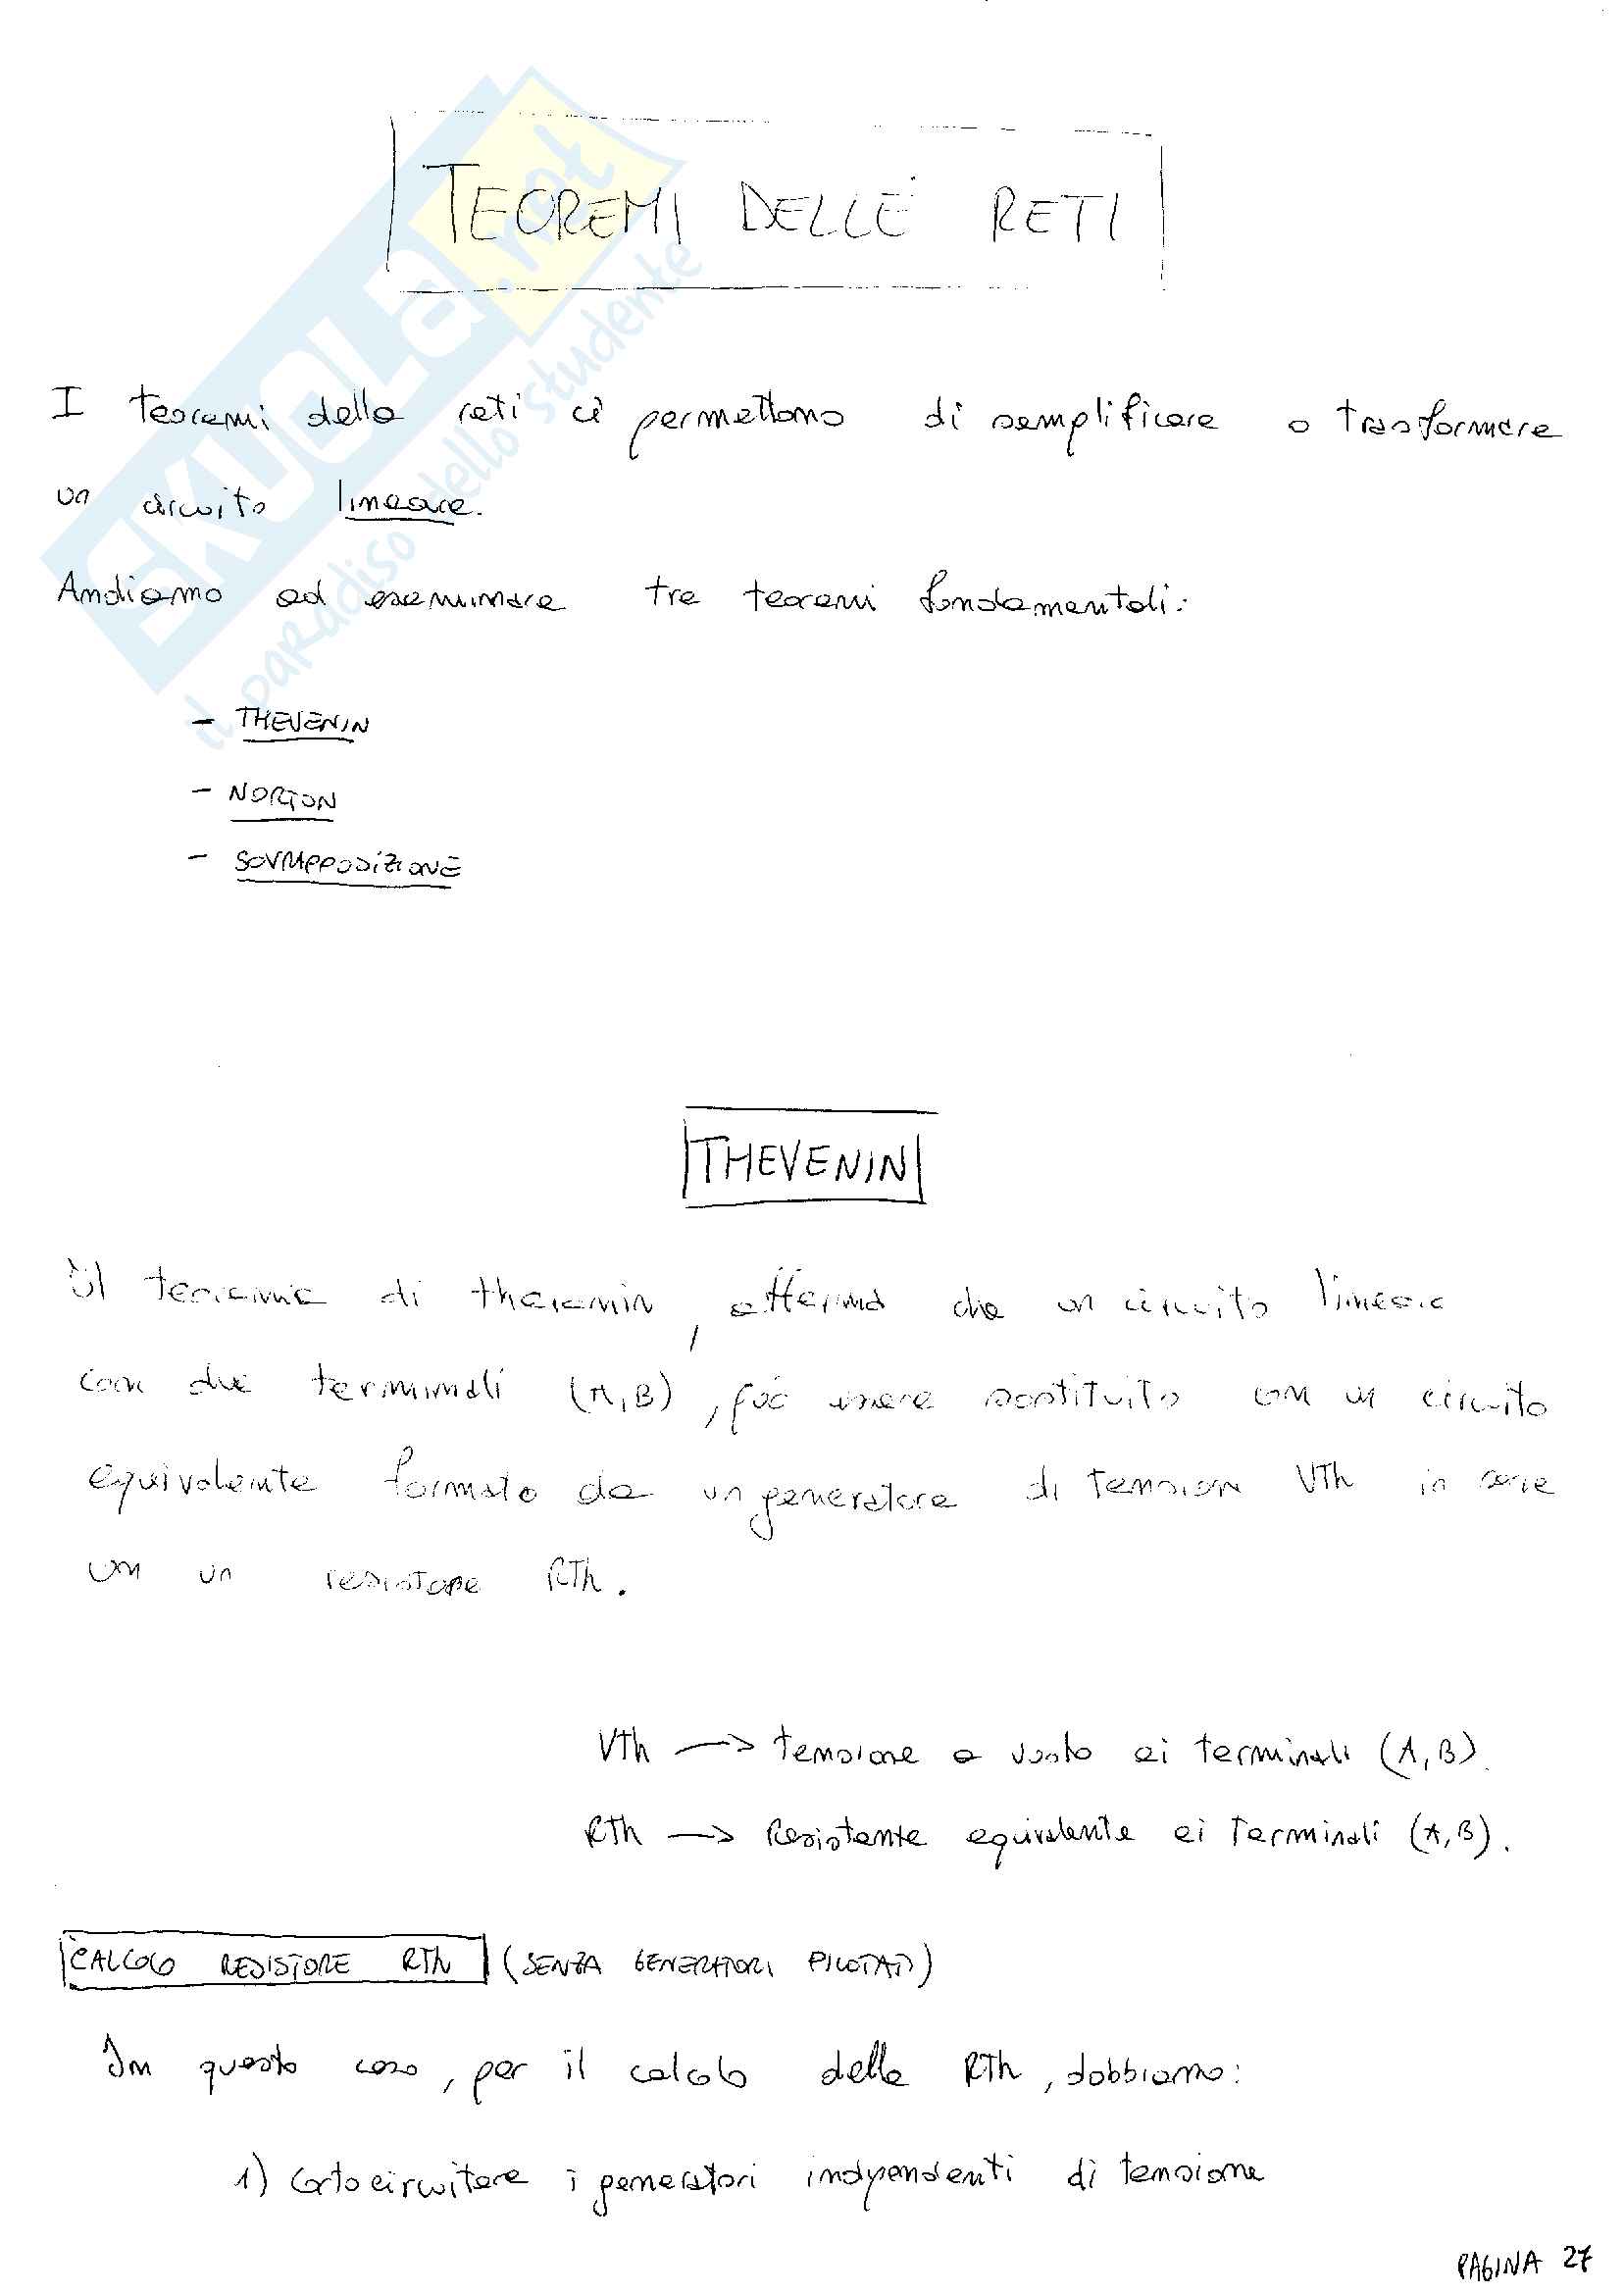 TEOREMI DELLE RETI
I teoremi delle reti ci permettono di semplificare o trasformare
un circuito lineare.
Andiamo ad esaminare tre teoremi fondamentali:
- THEVENIN
- NORTON
- SOVRAPPOSIZIONE
SKUOLA.net
il paradiso dello studente
THEVENIN
Il teorema di thevenin, afferma che un circuito lineare
con due terminali (A,B), può essere sostituito con un circuito
equivalente formato da un generatore di tensione VTh in serie
con un resistore RTh.
VTh → tensione a vuoto ai terminali (A,B).
RTh → Resistente equivalente ai terminali (A,B).
CALCOLO RESISTORE RTh (SENZA GENERATORI PILOTATI)
In questo caso, per il calcolo della RTh, dobbiamo:
1) Cortocircuitare i generatori indipendenti di tensione
PAGINA 27